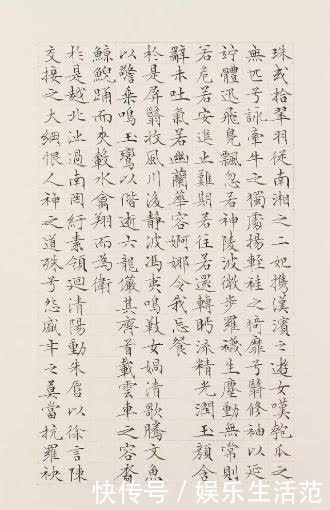 珠或拾翠羽從南湘之二妃攜漢濱之遊女嘆匏瓜之
無匹兮詠牽牛之獨處揚輕袿之猗靡兮翳修袖以延
竚體迅飛鳧飄忽若神陵波微步羅襪生塵動無常則
若危若安進止難期若往若還轉眄流精光潤玉顏含
辭未吐氣若幽蘭華容婀娜令我忘餐
於是屏翳收風川後靜波馮夷鳴鼓女媧清歌騰文魚
以警乘鳴玉鸞以偕逝六龍儼其齊首載雲車之容裔
鯨鯢踊而夾轂水禽翔而為衛
於是越北沚過南岡紆素領迴清陽動朱唇以徐言陳
交接之大綱恨人神之道殊兮怨盛年之莫當抗羅袂
快传号/娱乐生活范